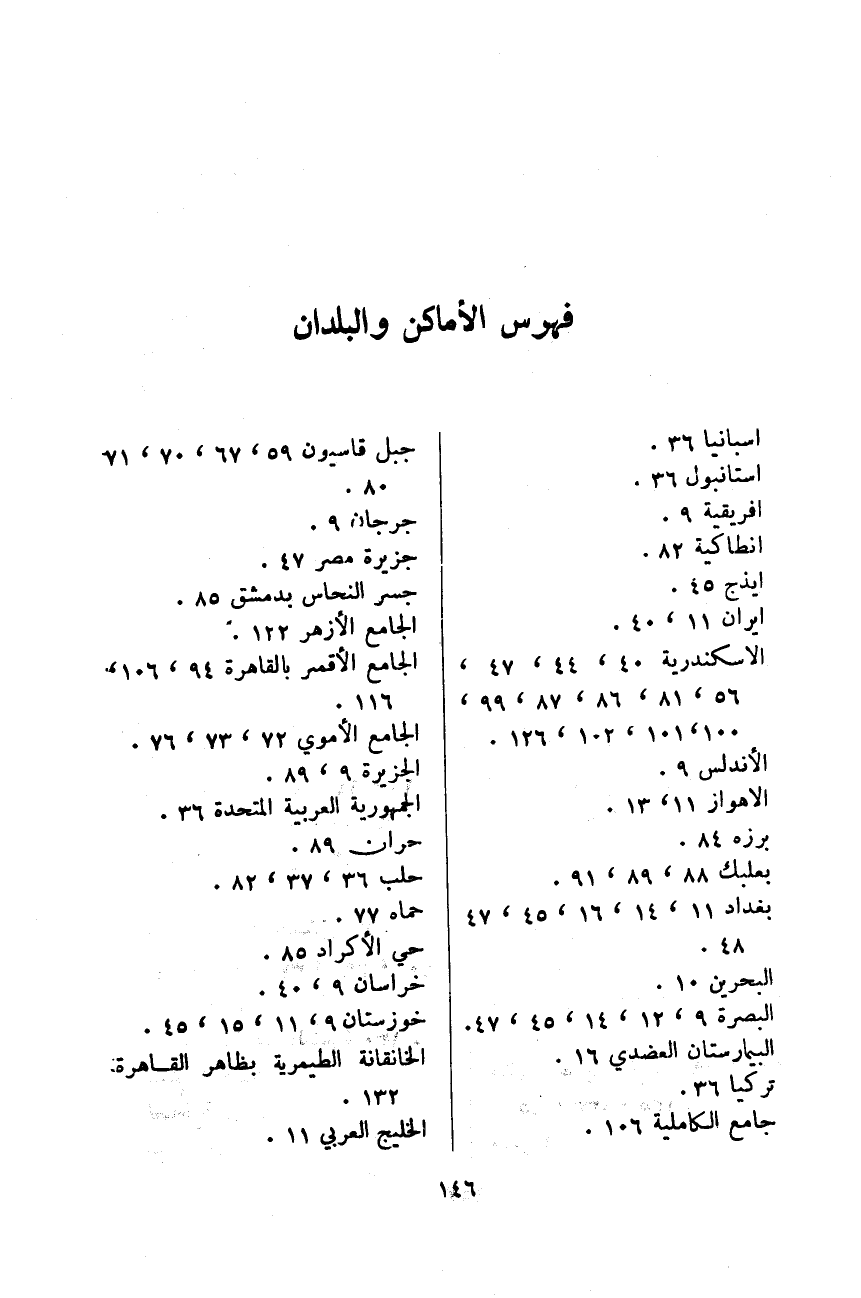 فهرس الأماكن والبلدان
اسبانيا ٣٦ .
استانبول ٣٦ .
افريقية ٩ .
انطاكية ٨٢ .
ايذج ٤٥ .
ايران ١١ ، ٤٠ .
الاسكندرية ٤٠ ، ٤٤ ، ٤٧ ،
٥٦ ، ٨١ ، ٨٦ ، ٨٧ ، ٩٩ ،
١٠٠،١٠١ ، ١٠٢ ، ١٢٦ .
الأندلس ٩ .
الاهواز ١١، ١٣ .
برزه ٨٤ .
بعلبك ٨٨ ، ٨٩ ، ٩١ .
بغداد ١١ ، ١٤ ، ١٦ ، ٤٥ ، ٤٧
٤٨ .
البحرين ١٠ .
البصرة ٩ ، ١٢ ، ١٤ ، ٤٥ ، ٤٧.
البيارستان العضدي ١٦ .
تركيا ٣٦.
جامع الكاملية ١٠٦ .
جبل قاسيون ٥٩ ، ٦٧ ، ٧٠ ، ٧١
٨٠ .
جرجان ٩ .
جزيرة مصر ٤٧ .
جسر النحاس بدمشق ٨٥ .
الجامع الأزهر ١٢٢ .
الجامع الأقمر بالقاهرة ٩٤ ، ١٠٦،
١١٦ .
الجامع الأموي ٧٢ ، ٧٣ ، ٧٦ .
الجزيرة ٩ ، ٨٩ .
الجمهورية العربية المتحدة ٣٦ .
حران ٨٩ .
حلب ٣٦ ، ٣٧ ، ٨٢ .
حماه ٧٧ .
حي الأكراد ٨٥ .
خراسان ٩ ، ٤٠ .
خوزستان ٩ ، ١١ ، ١٥ ، ٤٥ .
الخانقانة الطيمرية بظاهر القـاهرة:
١٣٢ .
الخليج العربي ١١ .
١٤٦